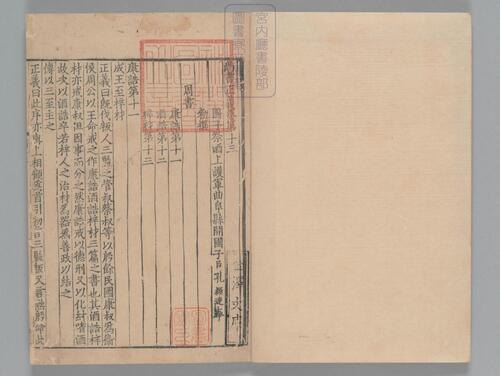 尚書正義卷第十三
國子祭酒上護軍曲阜縣開國子臣孔穎達奉
勑撰
周書
康誥第十一
酒誥第十二
梓材第十三
康誥第十一
成王至梓材
正義曰既伐叛人三監之管叔蔡叔等以殷餘民國康叔爲衞
侯周公以王命戒之作康誥酒誥梓材三篇之書也其酒誥梓
材亦戒康叔但因事而分之然康誥戒以德刑又以化紂嗜酒
故次以酒誥卒若梓人之治材爲器爲善政以結之
傳以三至主之
正義曰此序亦與上相顧爲首引初言三監叛又言
宮內廳書陵部
圖書寮文庫
金澤文庫